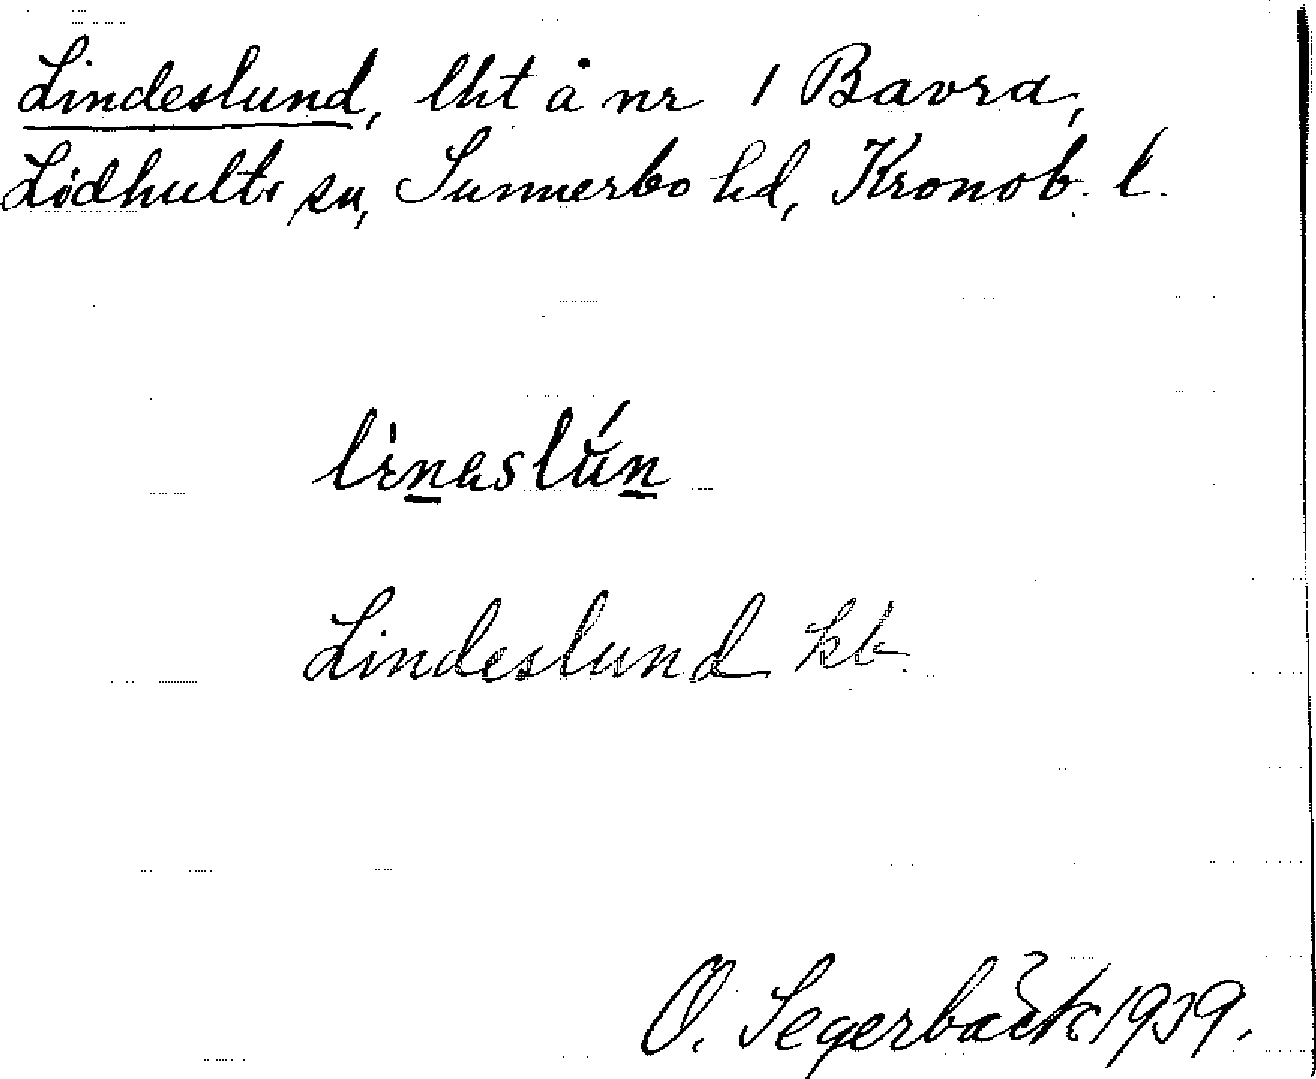 Lindeslund, lht å nr 1 Bavra,
Lidhults sn, Sunnerbo hd, Kronob. l.
Lindeslund kb.
O. Segerbäck 1939.